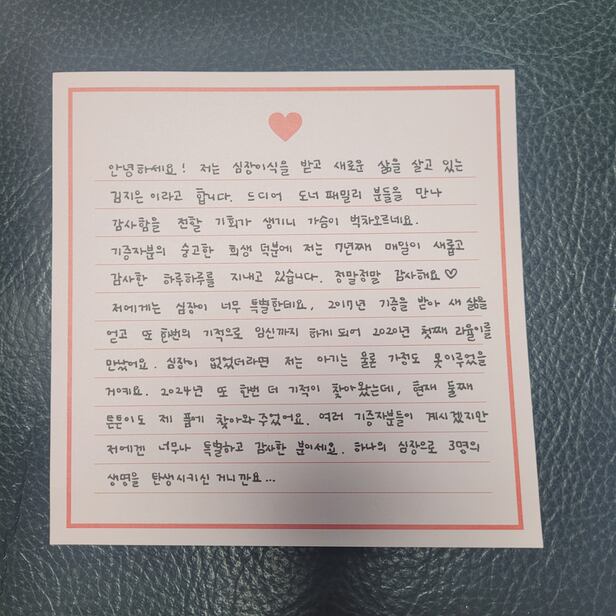 안녕하세요! 저는 심장이식을 받고 새로운 삶을 살고 있는
김지은이라고 합니다. 드디어 도너패밀리 분들을 만나
감사함을 전할 기회가 생기니 가슴이 벅차오르네요.
기증자분의 숭고한 희생 덕분에 저는 7년째 매일이 새롭고
감사한 하루하루를 지내고 있습니다. 정말정말 감사해요 ♡
저에게는 심장이 너무 특별한데요, 2017년 기증을 받아 새 삶을
얻고 또 한번의 기적으로 임신까지 하게 되어 2020년 첫째 라율이를
만났어요. 심장이 없었더라면 저는 아기는 물론 가정도 못이루었을
거예요. 2024년 또 한번 더 기적이 찾아왔는데, 현재 둘째
튼튼이도 제 품에 찾아와주었어요. 여러 기증자분들이 계시겠지만
저에겐 너무나 특별하고 감사한 분이세요. 하나의 심장으로 3명의
생명을 탄생시키신거니깐요...